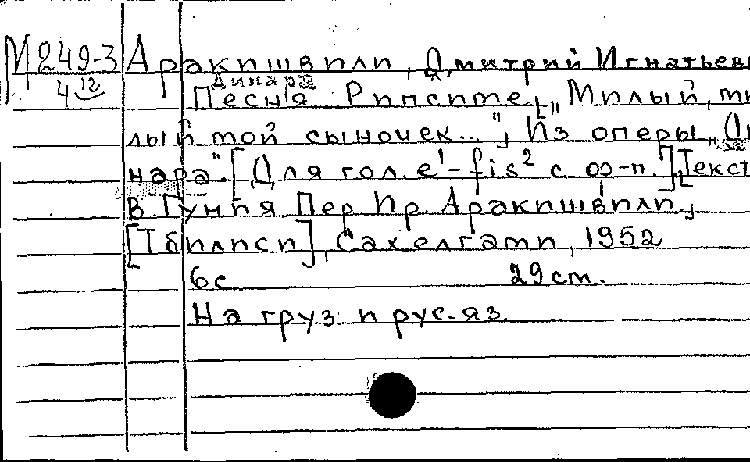 М 249-3 Аракишвили, Дмитрий Игнатьеви
4 12 Динара
Песня Рипсите ["Милый, ми
лый мой сыночек..."], Из оперы "Ди
нара". [Для гол. e¹-fis² с ф-п.] [Текст
В Гуния Пер Ир Аракишвили]
[Тбилиси], Сахелгами, 1952
6с 29 см.
На груз. и рус. яз.